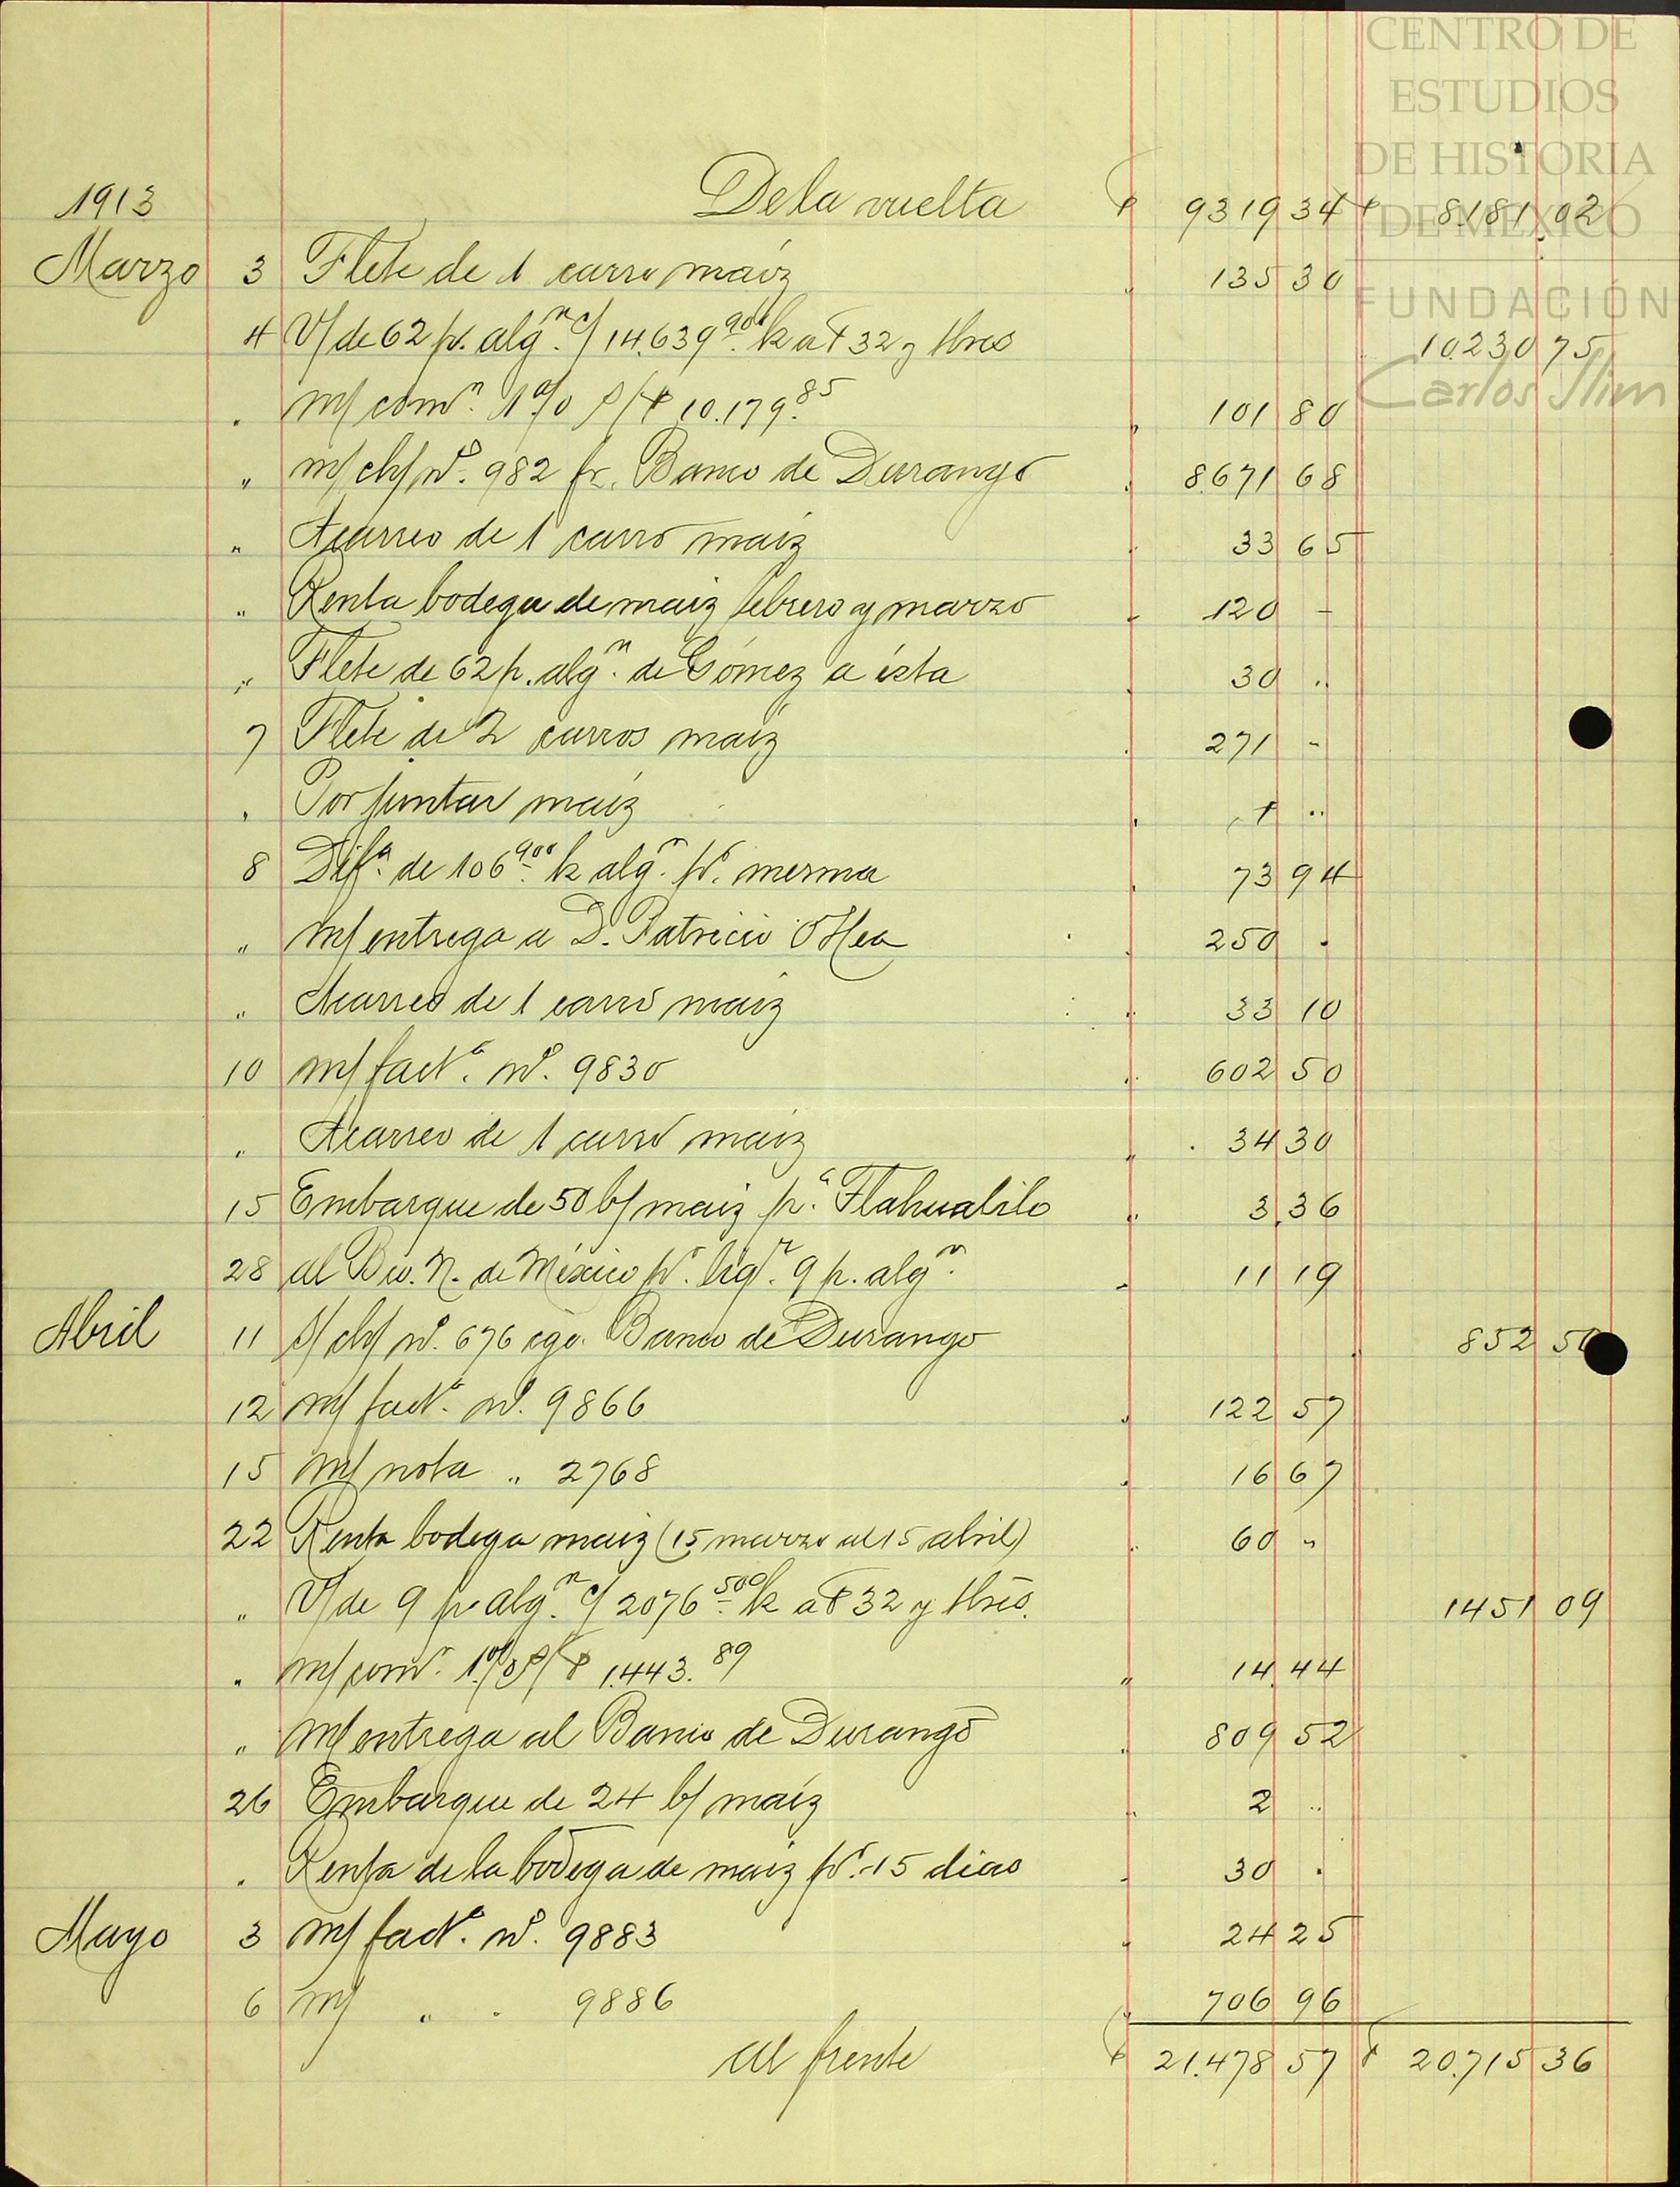 CENTRO DE
ESTUDIOS
DE HISTORIA
DE MÉXICO
FUNDACIÓN
Carlos Slim
1913 De la vuelta $ 9319 34 $ 8181 02
Marzo 3 Flete de 1 carro maíz " 135 30
4 V/ de 62 p. algn. c/ 14.639.900 k a $32 y tbres 10.230 75
" m/ comn. 1% s/ $ 10.179.85 " 101 80
" m/ ch/ no. 982 fr. Banco de Durango " 8.671 68
" Acarreo de 1 carro maíz " 33 65
" Renta bodega de maíz febrero y marzo " 120 -
" Flete de 62 p. algn. de Gómez a ésta " 30 "
7 Flete de 2 carros maíz " 271 -
" Por juntar maíz " 1 "
8 Difa. de 106.900 k algn. pr. merma " 73 94
" m/ entrega a D. Patricio O'Hea " 250 "
" Acarreo de 1 carro maíz " 33 10
10 m/ facta. no. 9830 " 602 50
" Acarreo de 1 carro maíz " 34 30
15 Embarque de 50 b/ maíz pa. Tlahualilo " 3.36
28 al Bco. N. de México pr. liqn. 9 p. algn. " 11 19
Abril 11 s/ ch/ no. 676 cgo. Banco de Durango " 852 50
12 m/ facta. no. 9866 " 122 57
15 m/ nota " 2768 " 16 67
22 Renta bodega maíz (15 marzo al 15 abril) " 60 "
" V/ de 9 p. algn. c/ 2076.500 k a $32 y tbres. 1451 09
" m/ comn. 1% s/ $ 1.443.89 " 14.44
" m/ entrega al Banco de Durango " 809 52
26 Embarque de 24 b/ maíz " 2 "
" Renta de la bodega de maíz pr. 15 días " 30 "
Mayo 3 m/ facta. no. 9883 " 24 25
6 m/ " " 9886 " 706 96
al frente $ 21.478 57 $ 20.715 36